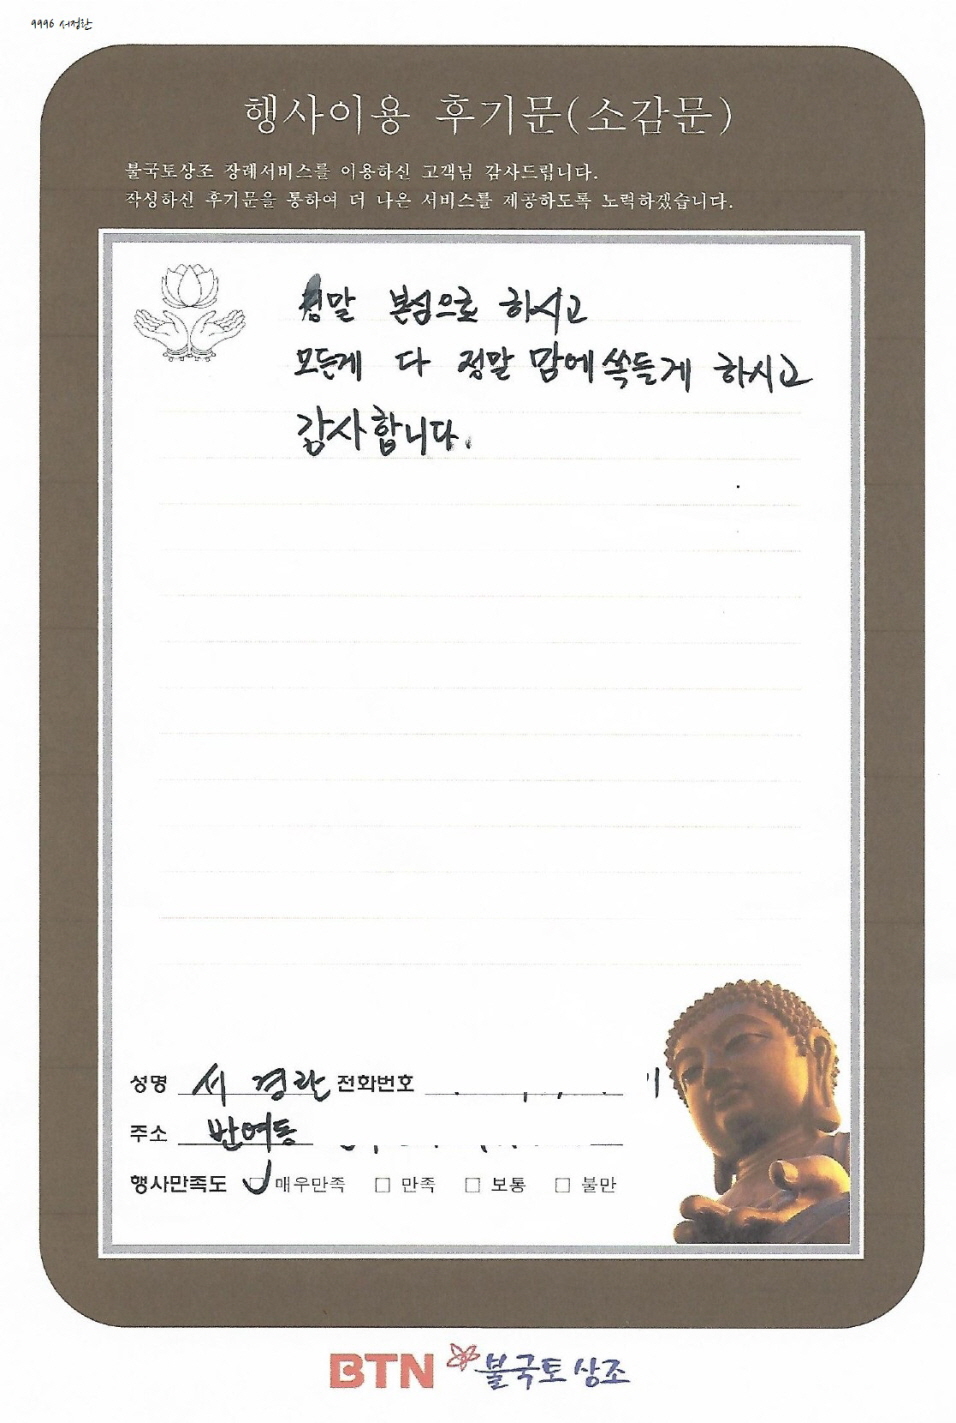 9996 서경란
행사이용 후기문(소감문)
불국토상조 장례서비스를 이용하신 고객님 감사드립니다.
작성하신 후기문을 통하여 더 나은 서비스를 제공하도록 노력하겠습니다.
정말 본심으로 하시고
모든게 다 정말 맘에 쏙들게 하시고
감사합니다.
성명 서경란 전화번호
주소 반여동
행사만족도 매우만족 □ 만족 □ 보통 □ 불만
BTN 불국토상조